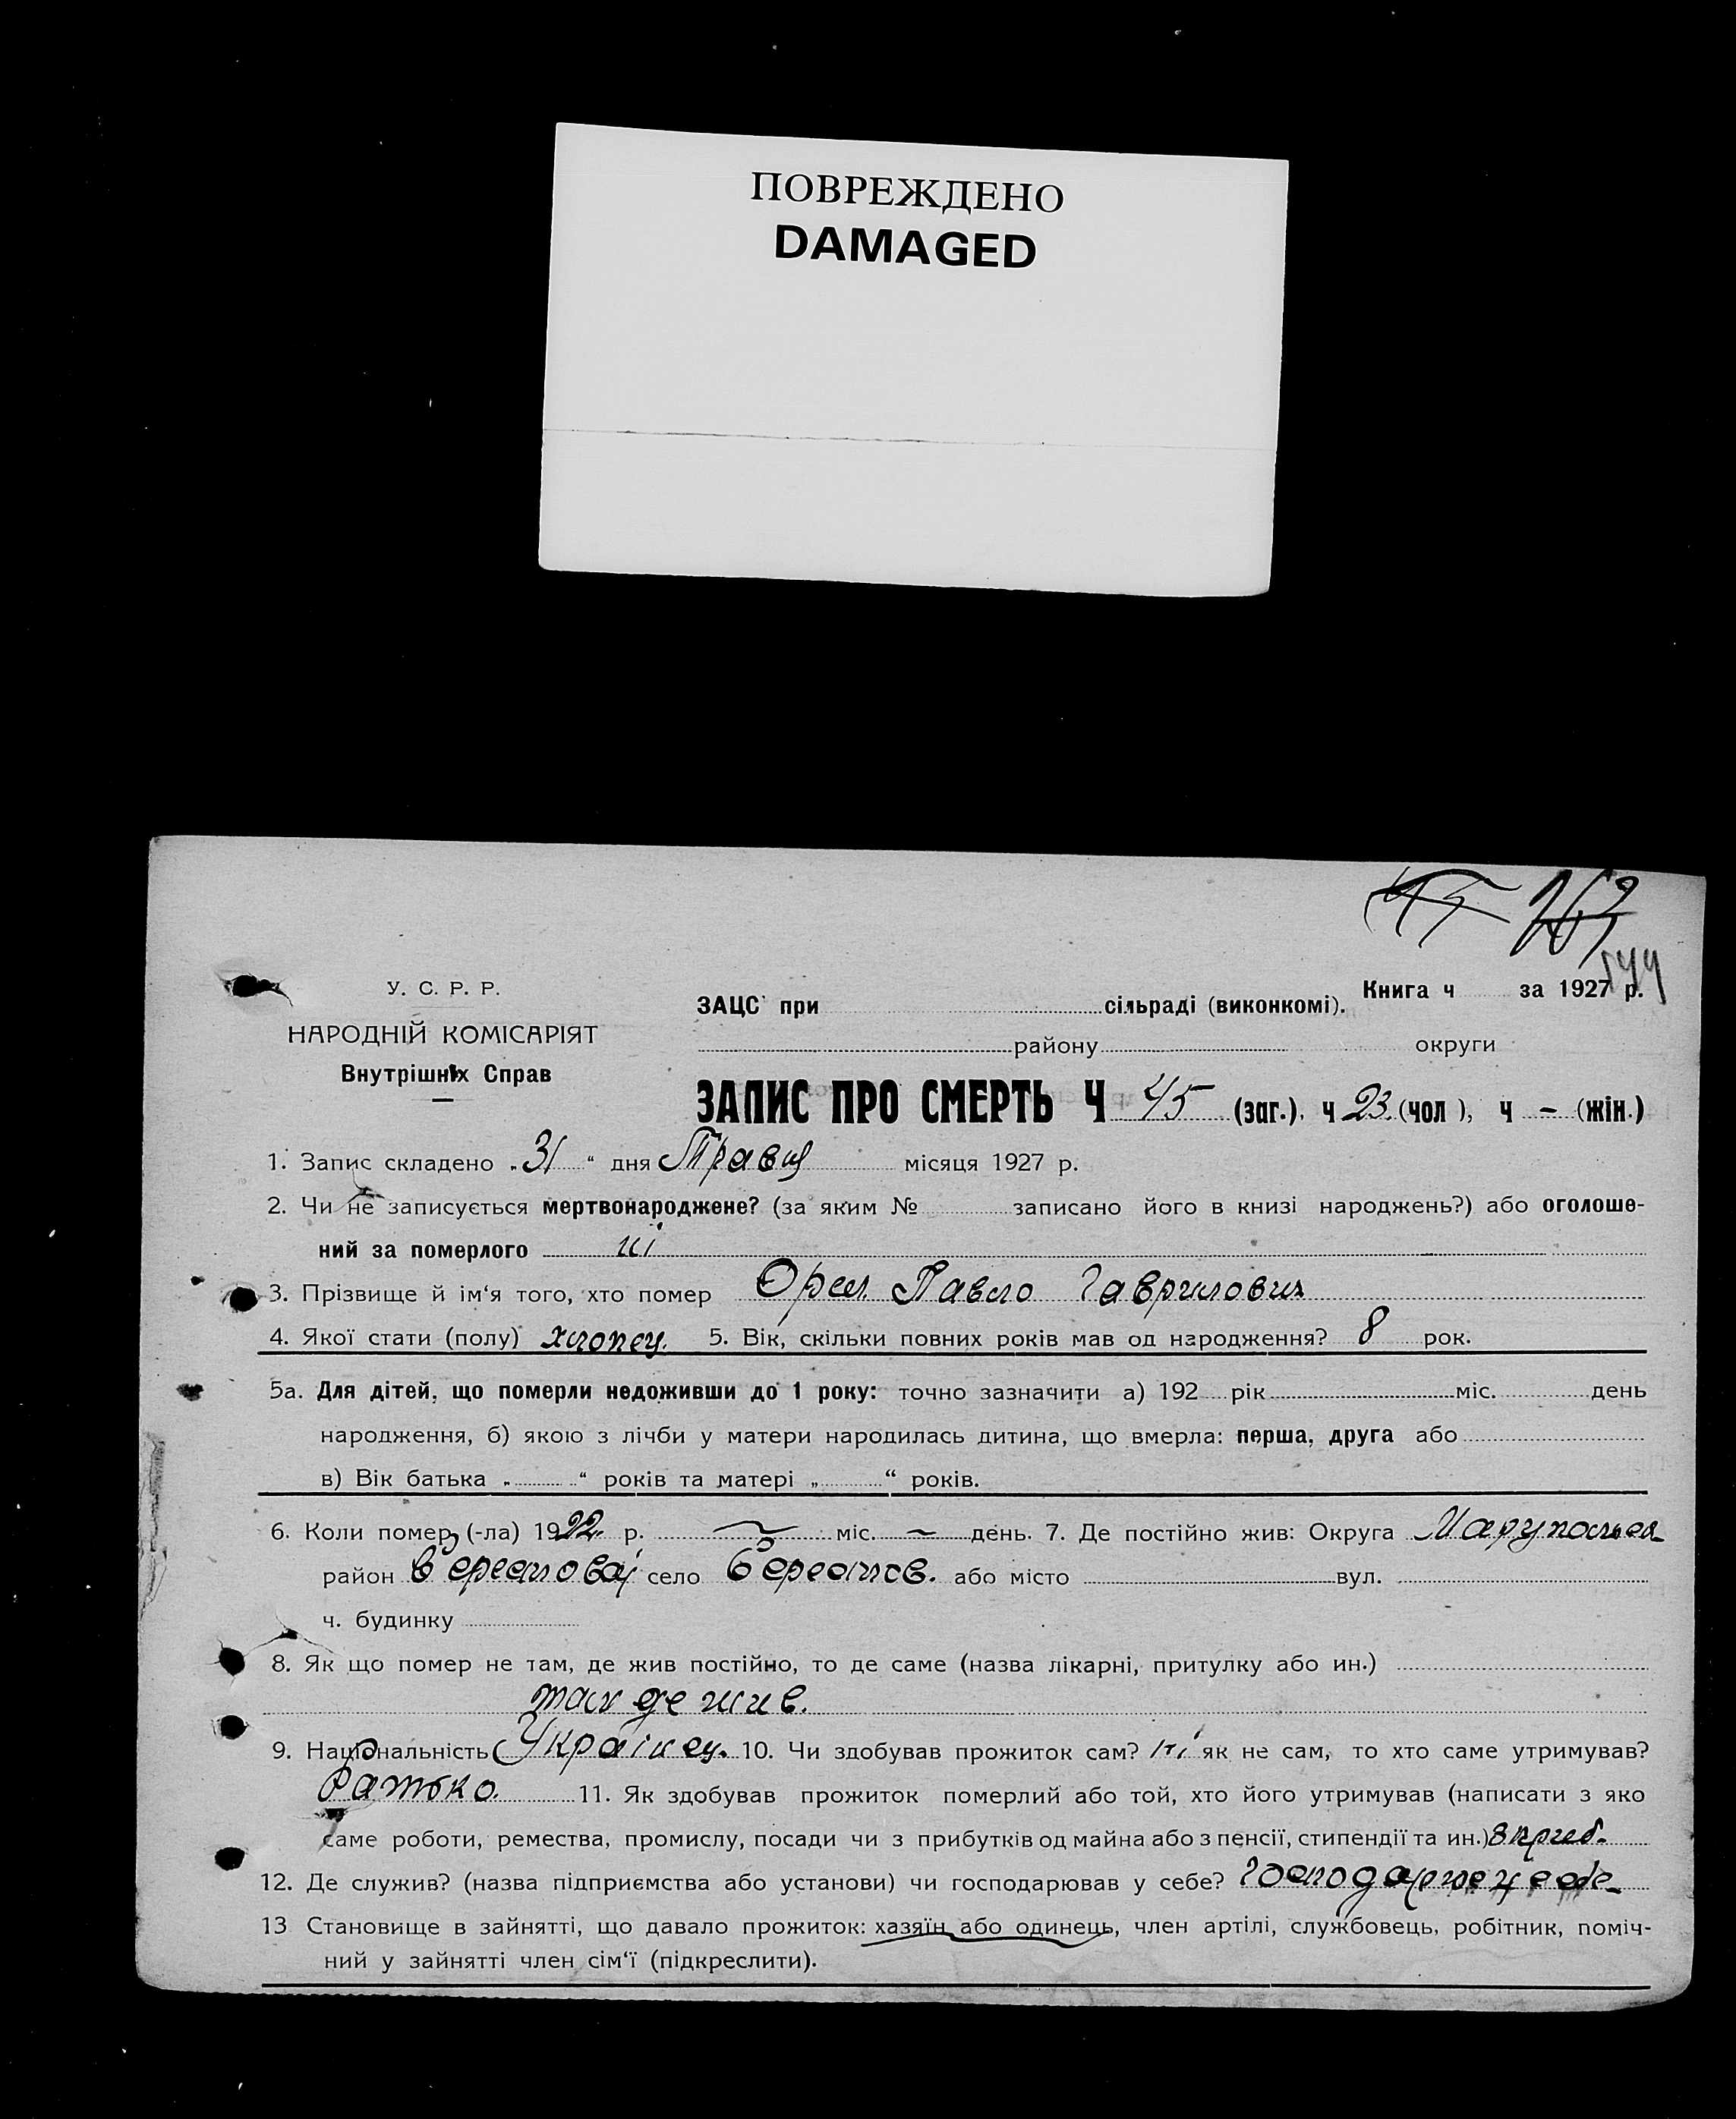 ПОВРЕЖДЕНО
DAMAGED
144
У. С. Р. Р.
НАРОДНІЙ КОМІСАРІЯТ
Внутрішніх Справ
ЗАЦС при сільраді (виконкомі). Книга ч за 1927 р.
району округи
ЗАПИС ПРО СМЕРТЬ Ч 45 (заг.), ч 23 (чол), ч – (жін.)
1. Запис складено „31“ дня Травця місяця 1927 р.
2. Чи не записується мертвонароджене? (за яким № записано його в книзі народжень?) або оголоше-
ний за померлого ні
3. Прізвище й ім‘я того, хто помер Орел Павло Гаврилович
4. Якої стати (полу) хлопец. 5. Вік, скільки повних років мав од народження? 8 рок.
5а. Для дітей, що померли недоживши до 1 року: точно зазначити а) 192 рік міс. день
народження, б) якою з лічби у матери народилась дитина, що вмерла: перша, друга або
в) Вік батька „ “ років та матері „ “ років.
6. Коли помер (-ла) 1922 р. ~ міс. ~ день. 7. Де постійно жив: Округа Марупольск
район Берестовой село Берестов. або місто вул.
ч. будинку
8. Як що помер не там, де жив постійно, то де саме (назва лікарні, притулку або ин.)
там де жив.
9. Національність Українец. 10. Чи здобував прожиток сам? ні як не сам, то хто саме утримував?
Батько. 11. Як здобував прожиток померлий або той, хто його утримував (написати з яко
саме роботи, ремества, промислу, посади чи з прибутків од майна або з пенсії, стипендії та ин.) з приб.
12. Де служив? (назва підприємства або установи) чи господарював у себе?
13 Становище в зайнятті, що давало прожиток: хазяїн або одинець, член артілі, службовець, робітник, поміч-
ний у зайнятті член сім‘ї (підкреслити).